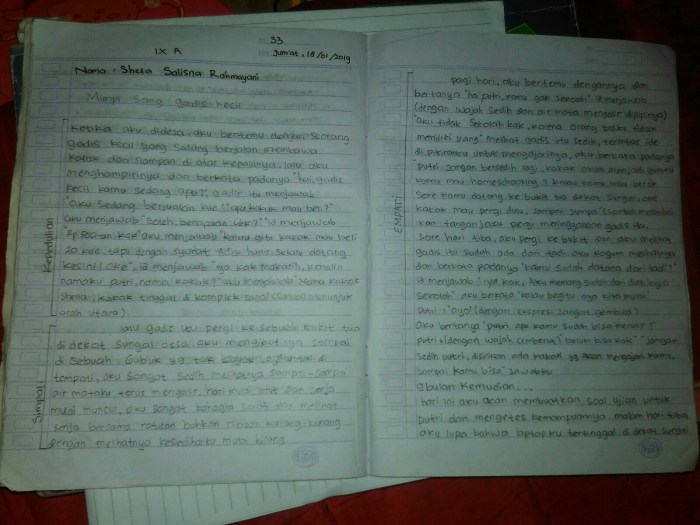 IX A
33
Jum'at, 18/01/2019
Nama : Shesa Salisna Rahmayani
Mimpi Sang gadis kecil
Ketika aku didesa, aku bertemu dengan seorang
gadis kecil yang sedang berjalan membawa
kakak dan siampan di atas kepalanya, lalu aku
menghampirinya dan berkata padanya "hai, gadis
kecil kamu sedang apa?", gadis itu menjawab
"aku sedang berjualan kue kakak mau beli?"
aku menjawab "boleh, berapaan kue?" ia menjawab
"Rp 500-an kak" aku menjawab "kakak mau beli
20 kue, tapi dengan syarat kamu harus selalu datang
kesini! oke", ia menjawab "ya kak makasih, kenalin
namaku putri, nama kakak?" aku menjawab "Nama kakak
Shesa, kakak tinggal di komplek sana" (sambil menunjuk
arah utara)
Kepedulian
lalu gadis itu pergi ke sebuah bukit tua
di dekat sungai desa, aku mengikutinya sampai
di sebuah gubuk yg tak untuk di
tempati, aku sangat sedih melihatnya sampai-sampai
air mataku terus mengalir, hari mulai sore dan senja
mulai muncul, aku sangat bahagia saat melihat
senja bersama ratusan bahkan ribuan kunang-kunang
dengan melihatnya kesedihanku mulai hilang
Simpati
pagi hari, aku bertemu dengannya dan
bertanya "hai putri, kamu gak sekolah" ia menjawab
(dengan wajah sedih dan air mata mengalir dipipinya)
"aku tidak sekolah kak, karena orang tuaku tidak
memiliki uang" melihat gadis itu sedih, terlintas ide
di pikiranku untuk mengajarinya, aku berkata padanya
"putri jangan bersedih lagi, kakak akan menjadi gurumu
kamu mau homeschooling? kalau kamu mau
sore kamu datang ke bukit tua dekat sungai, oke
kakak mau pergi dulu, sampai jumpa" (sambil melambai
kan tangan) aku pergi meninggalkan gadis itu.
Sore hari tiba, aku pergi ke bukit dan aku melihat
gadis itu sudah ada dari tadi, aku kagum melihatnya
dan berkata padanya "kamu sudah datang dari tadi?"
ia menjawab "ya kak, aku memang sudah dari dulu ingin
sekolah" aku berkata "kalau begitu ayo kita mulai"
putri : "ayo" (dengan ekspresi sangat gembira)
aku bertanya "putri apa kamu sudah bisa menulis?"
putri : (dengan wajah cemberut) belum bisa kak" "jangan
sedih putri, disinikan ada kakak yg akan mengajari kamu,
sampai kamu bisa" jawabku
bulan kemudian...
hari ini aku akan membuatkan soal ujian untuk
putri dan mengetes kemampuannya, malam hari tiba
aku lupa bahwa laptopku tertinggal di dekat sungai
EMPATI